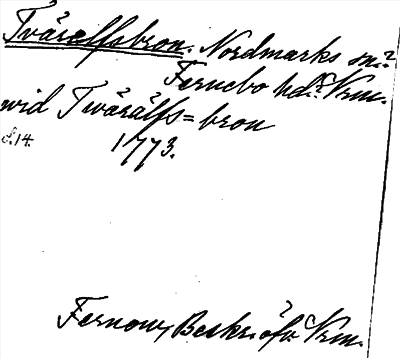 Tväraelfsbron. Nordmarks sn.
Fernebo hd. Vrm.
wid Twärälfs=bron
d. 14.
1773.
Fernow, Beskrifv. Vrm.